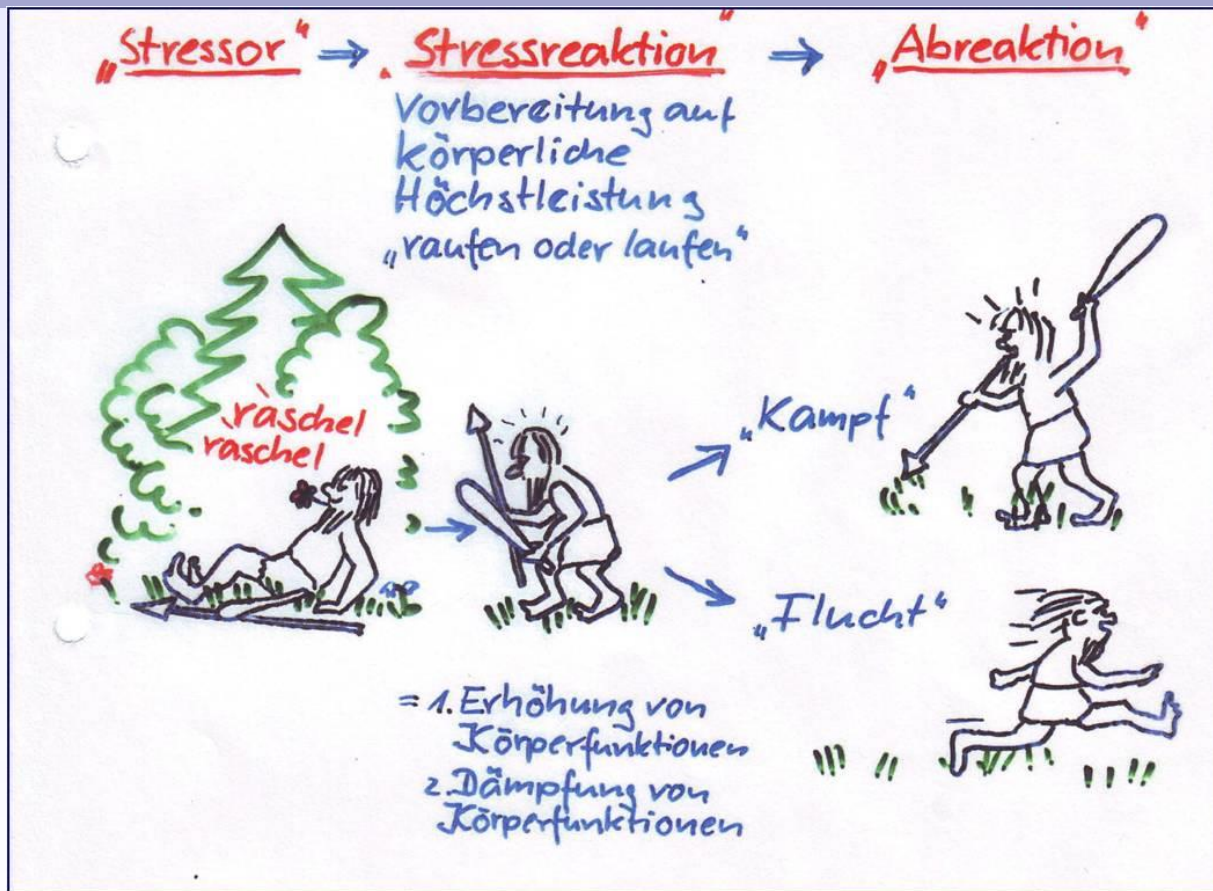 „Stressor“ → „Stressreaktion“ → „Abreaktion“
Vorbereitung auf
körperliche
Höchstleistung
„raufen oder laufen“
raschel
raschel
„Kampf“
„Flucht“
= 1. Erhöhung von
Körperfunktionen
2. Dämpfung von
Körperfunktionen